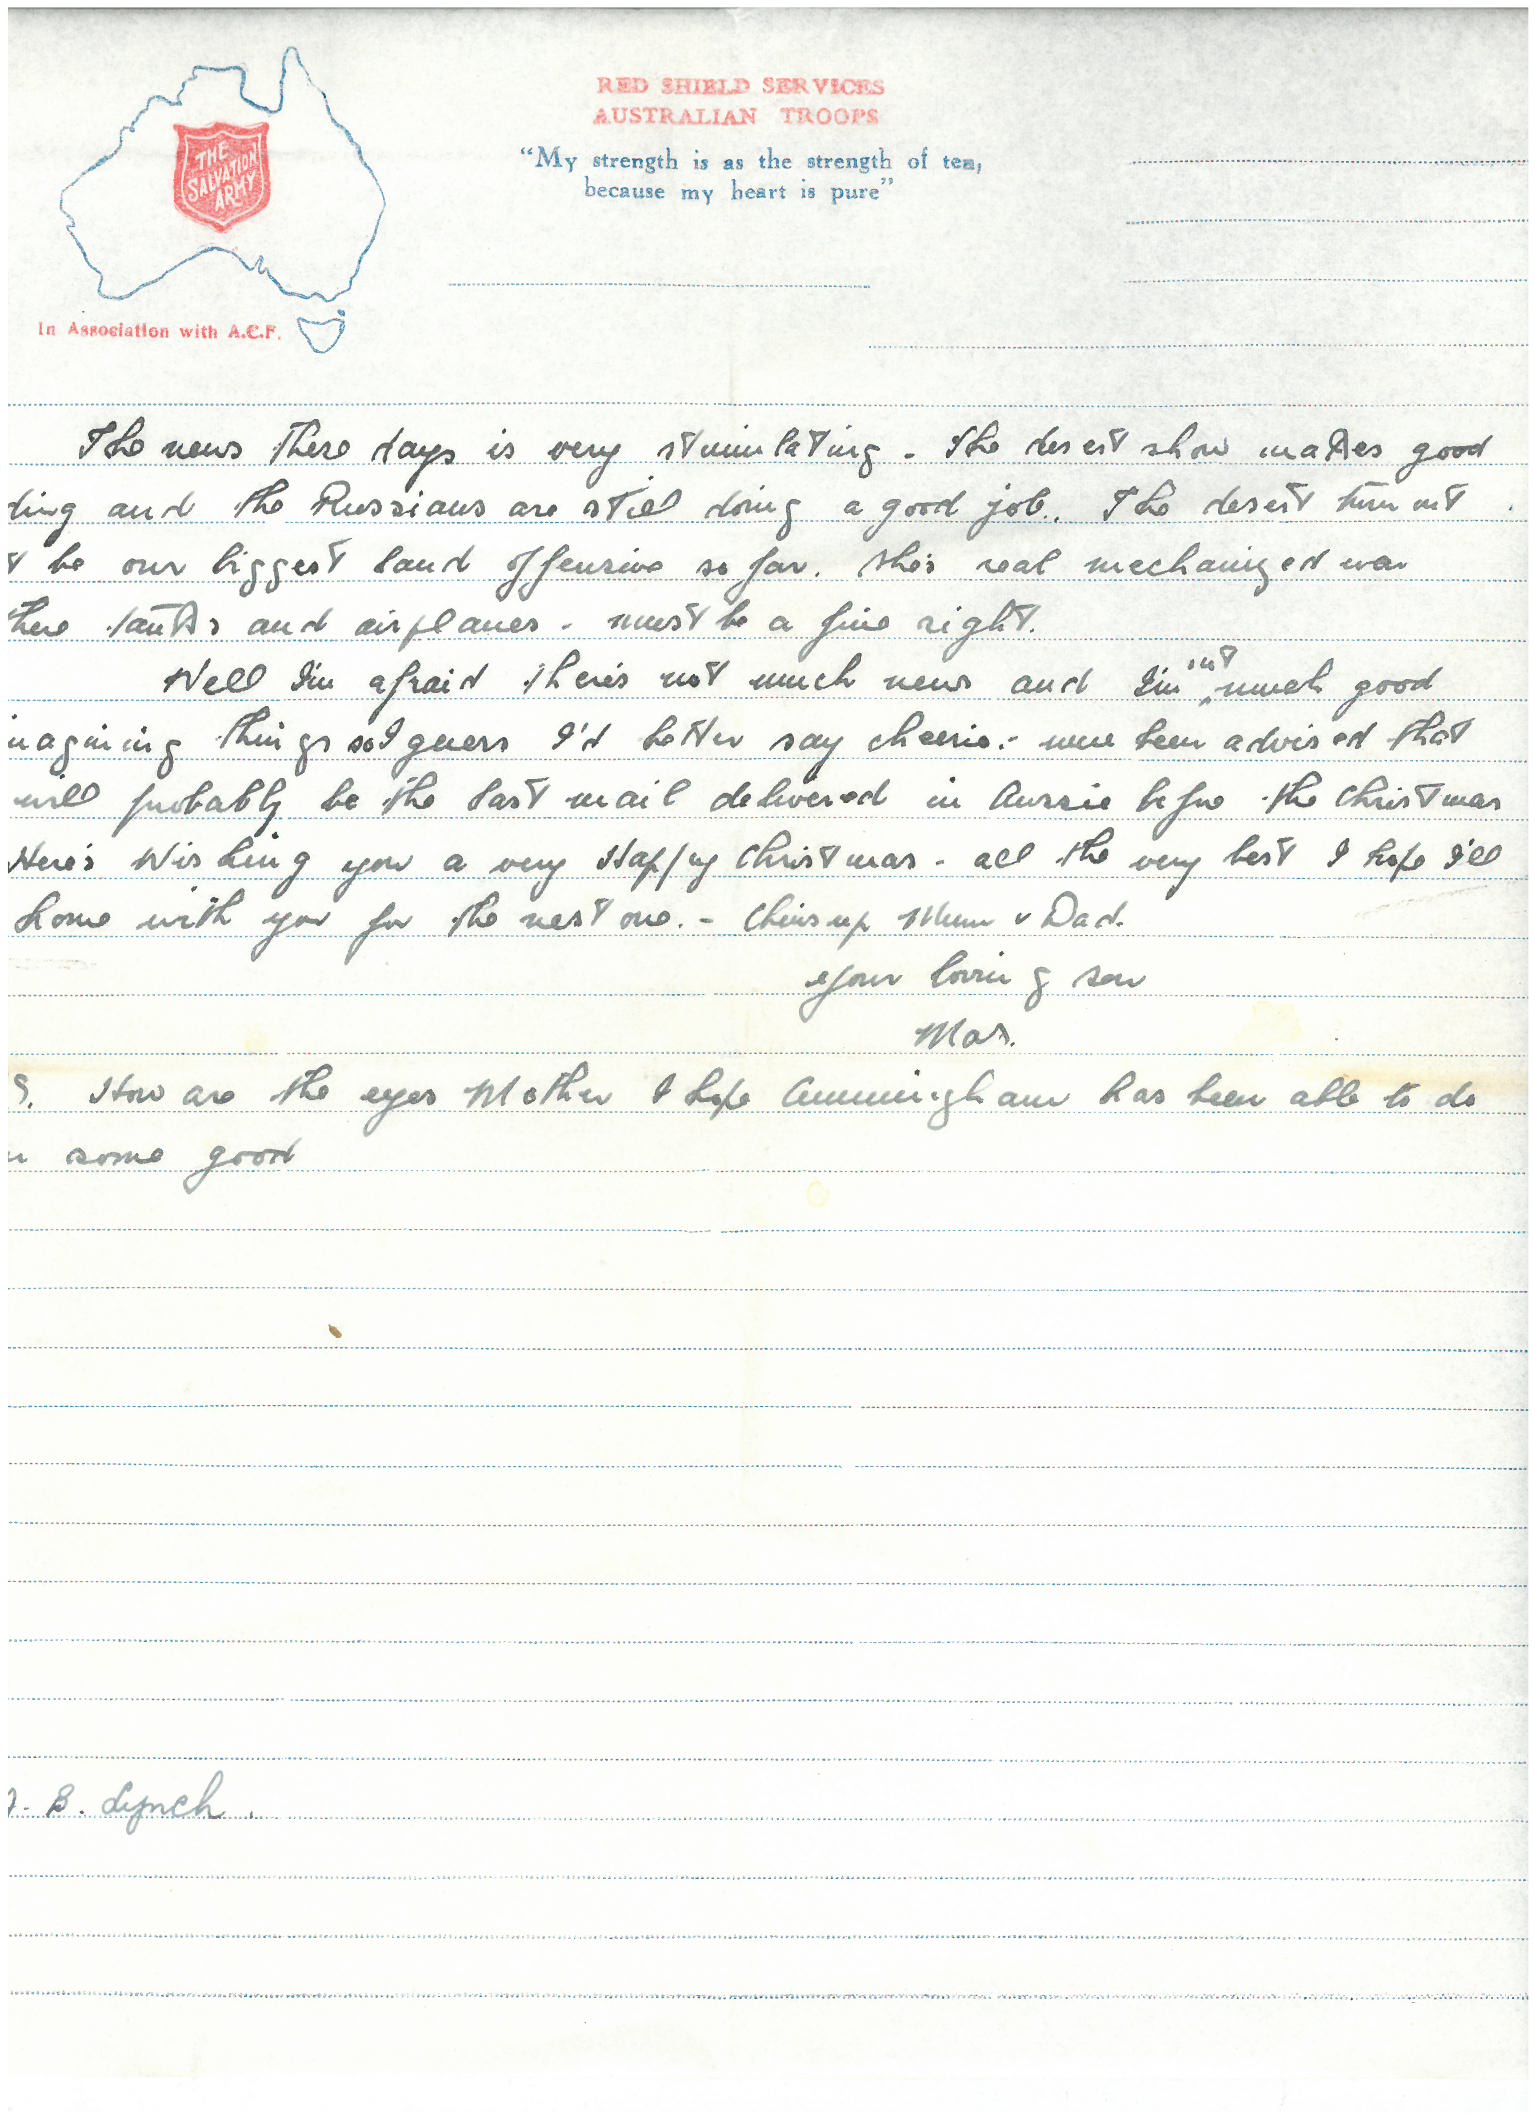 THE
SALVATION
ARMY
In Association with A.C.F.
RED SHIELD SERVICES
AUSTRALIAN TROOPS
"My strength is as the strength of ten,
because my heart is pure"
The news these days is very stimulating - The desert show makes good
ding and the Russians are still doing a good job. The desert turn out
t be our biggest land offensive so far. She's real mechanized war
there tanks and airplanes - must be a fine sight.
Well I'm afraid there's not much news and I'm not much good
magining things so I guess I'd better say cheerio. - weve been advised that
will probably be the last mail delivered in Aussie before the Christmas
Here's Wishing you a very Happy Christmas - all the very best I hope I'll
home with you for the next one. - Chins up Mum & Dad.
Your loving son
Mos.
S. How are the eyes Mother I hope Cunningham has been able to do
u some good
B. Lynch.